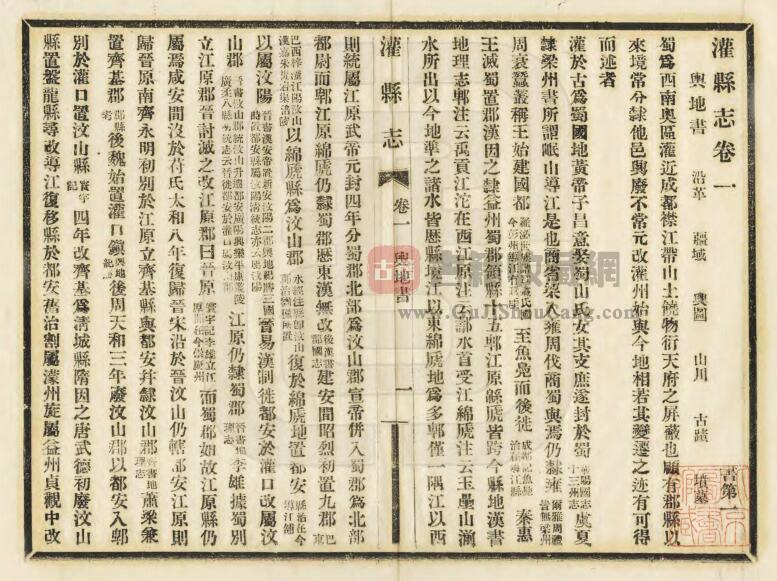 灌縣志卷一
輿地書 沿革 疆域 輿圖 山川 古蹟 墳墓 書第一
蜀爲西南奧區灌近成都襟江帶山土饒物衍天府之屏蔽也顧有郡縣以
來境常分隸他邑興廢不常元改灌州始與今地相若其變遷之迹有可得
而述者
灌於古爲蜀國地黃帝子昌意娶蜀山氏女其支庶遂封於蜀華陽國志十三州志虞夏
隸梁州書所謂岷山導江是也商省梁入雍周代商蜀與焉仍隸雍爾雅周禮皆無梁州
周衰蠶叢稱王始建國都至魚鳧而後徙秦惠
王滅蜀置郡漢因之隸益州蜀郡領縣十五郫江原緜虒皆跨今縣地漢書
地理志郫注云禹貢江沱在西江原注云䣕水首受江綿虒注云玉壘山湔
水所出以今地準之諸水皆歷縣境江以東綿虒地爲多郫僅一隅江以西
灌縣志 卷一 輿地書 一
則統屬江原武帝元封四年分蜀郡北部爲汶山郡宣帝併入蜀郡爲北部
都尉而郫江原綿虒仍隸蜀郡歷東漢無改後漢書郡國志建安間昭烈初置九郡巴東
巴西梓潼江陽汶山漢嘉朱提宕渠涪陵以綿虒縣爲汶山郡復於綿虒地置都安縣治在今導江鋪
以屬汶陽晉易漢制徙都安於灌口改屬汶
山郡江原仍隸蜀郡晉書地理志李雄據蜀別
立江原郡晉討滅之改江原郡曰晉原而蜀郡如故江原縣仍
屬焉咸安間沒於苻氏太和八年復歸晉宋沿於晉汶山仍轄都安江原則
歸晉原南齊永明初別於江原立齊基縣與都安幷隸汶山郡齊書地理志蕭梁兼
置齊基郡郡縣考後魏始置灌口鎭輿地記後周天和三年廢汶山郡以都安入郫
別於灌口置汶山縣寰宇記四年改齊基爲淸城縣隋因之唐武德初廢汶山
縣置盤龍縣尋改導江復移縣於都安舊治割屬濛州旋屬益州貞觀中改
古籍收藏网
www.GuJiShuCang.com